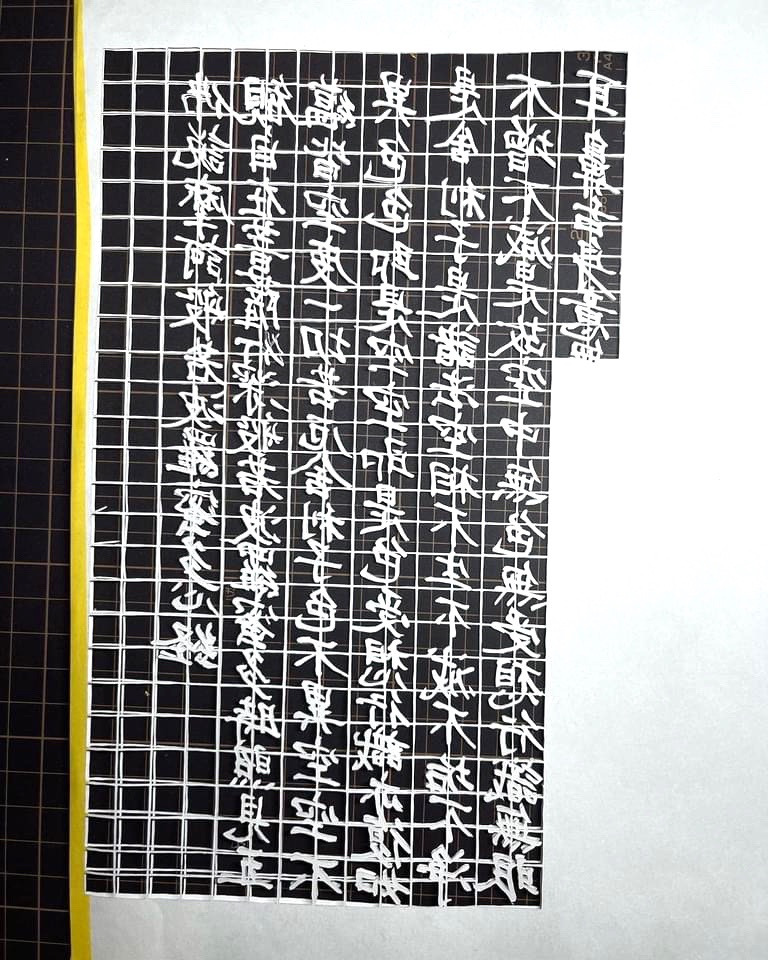 佛説摩訶般若波羅蜜多心経
観自在菩薩行深般若波羅蜜多時照見五
蘊皆空度一切苦厄舎利子色不異空空不
異色色即是空空即是色受想行識亦復如
是舎利子是諸法空相不生不滅不垢不浄
不増不減是故空中無色無受想行識無眼
耳鼻舌身意無